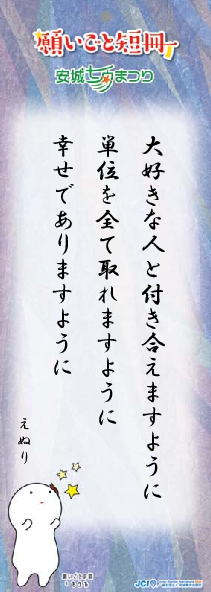 願いごと短冊
安城七夕まつり
大好きな人と付き合えますように
単位を全て取れますように
幸せでありますように
えぬり
願いごと短冊
JCI